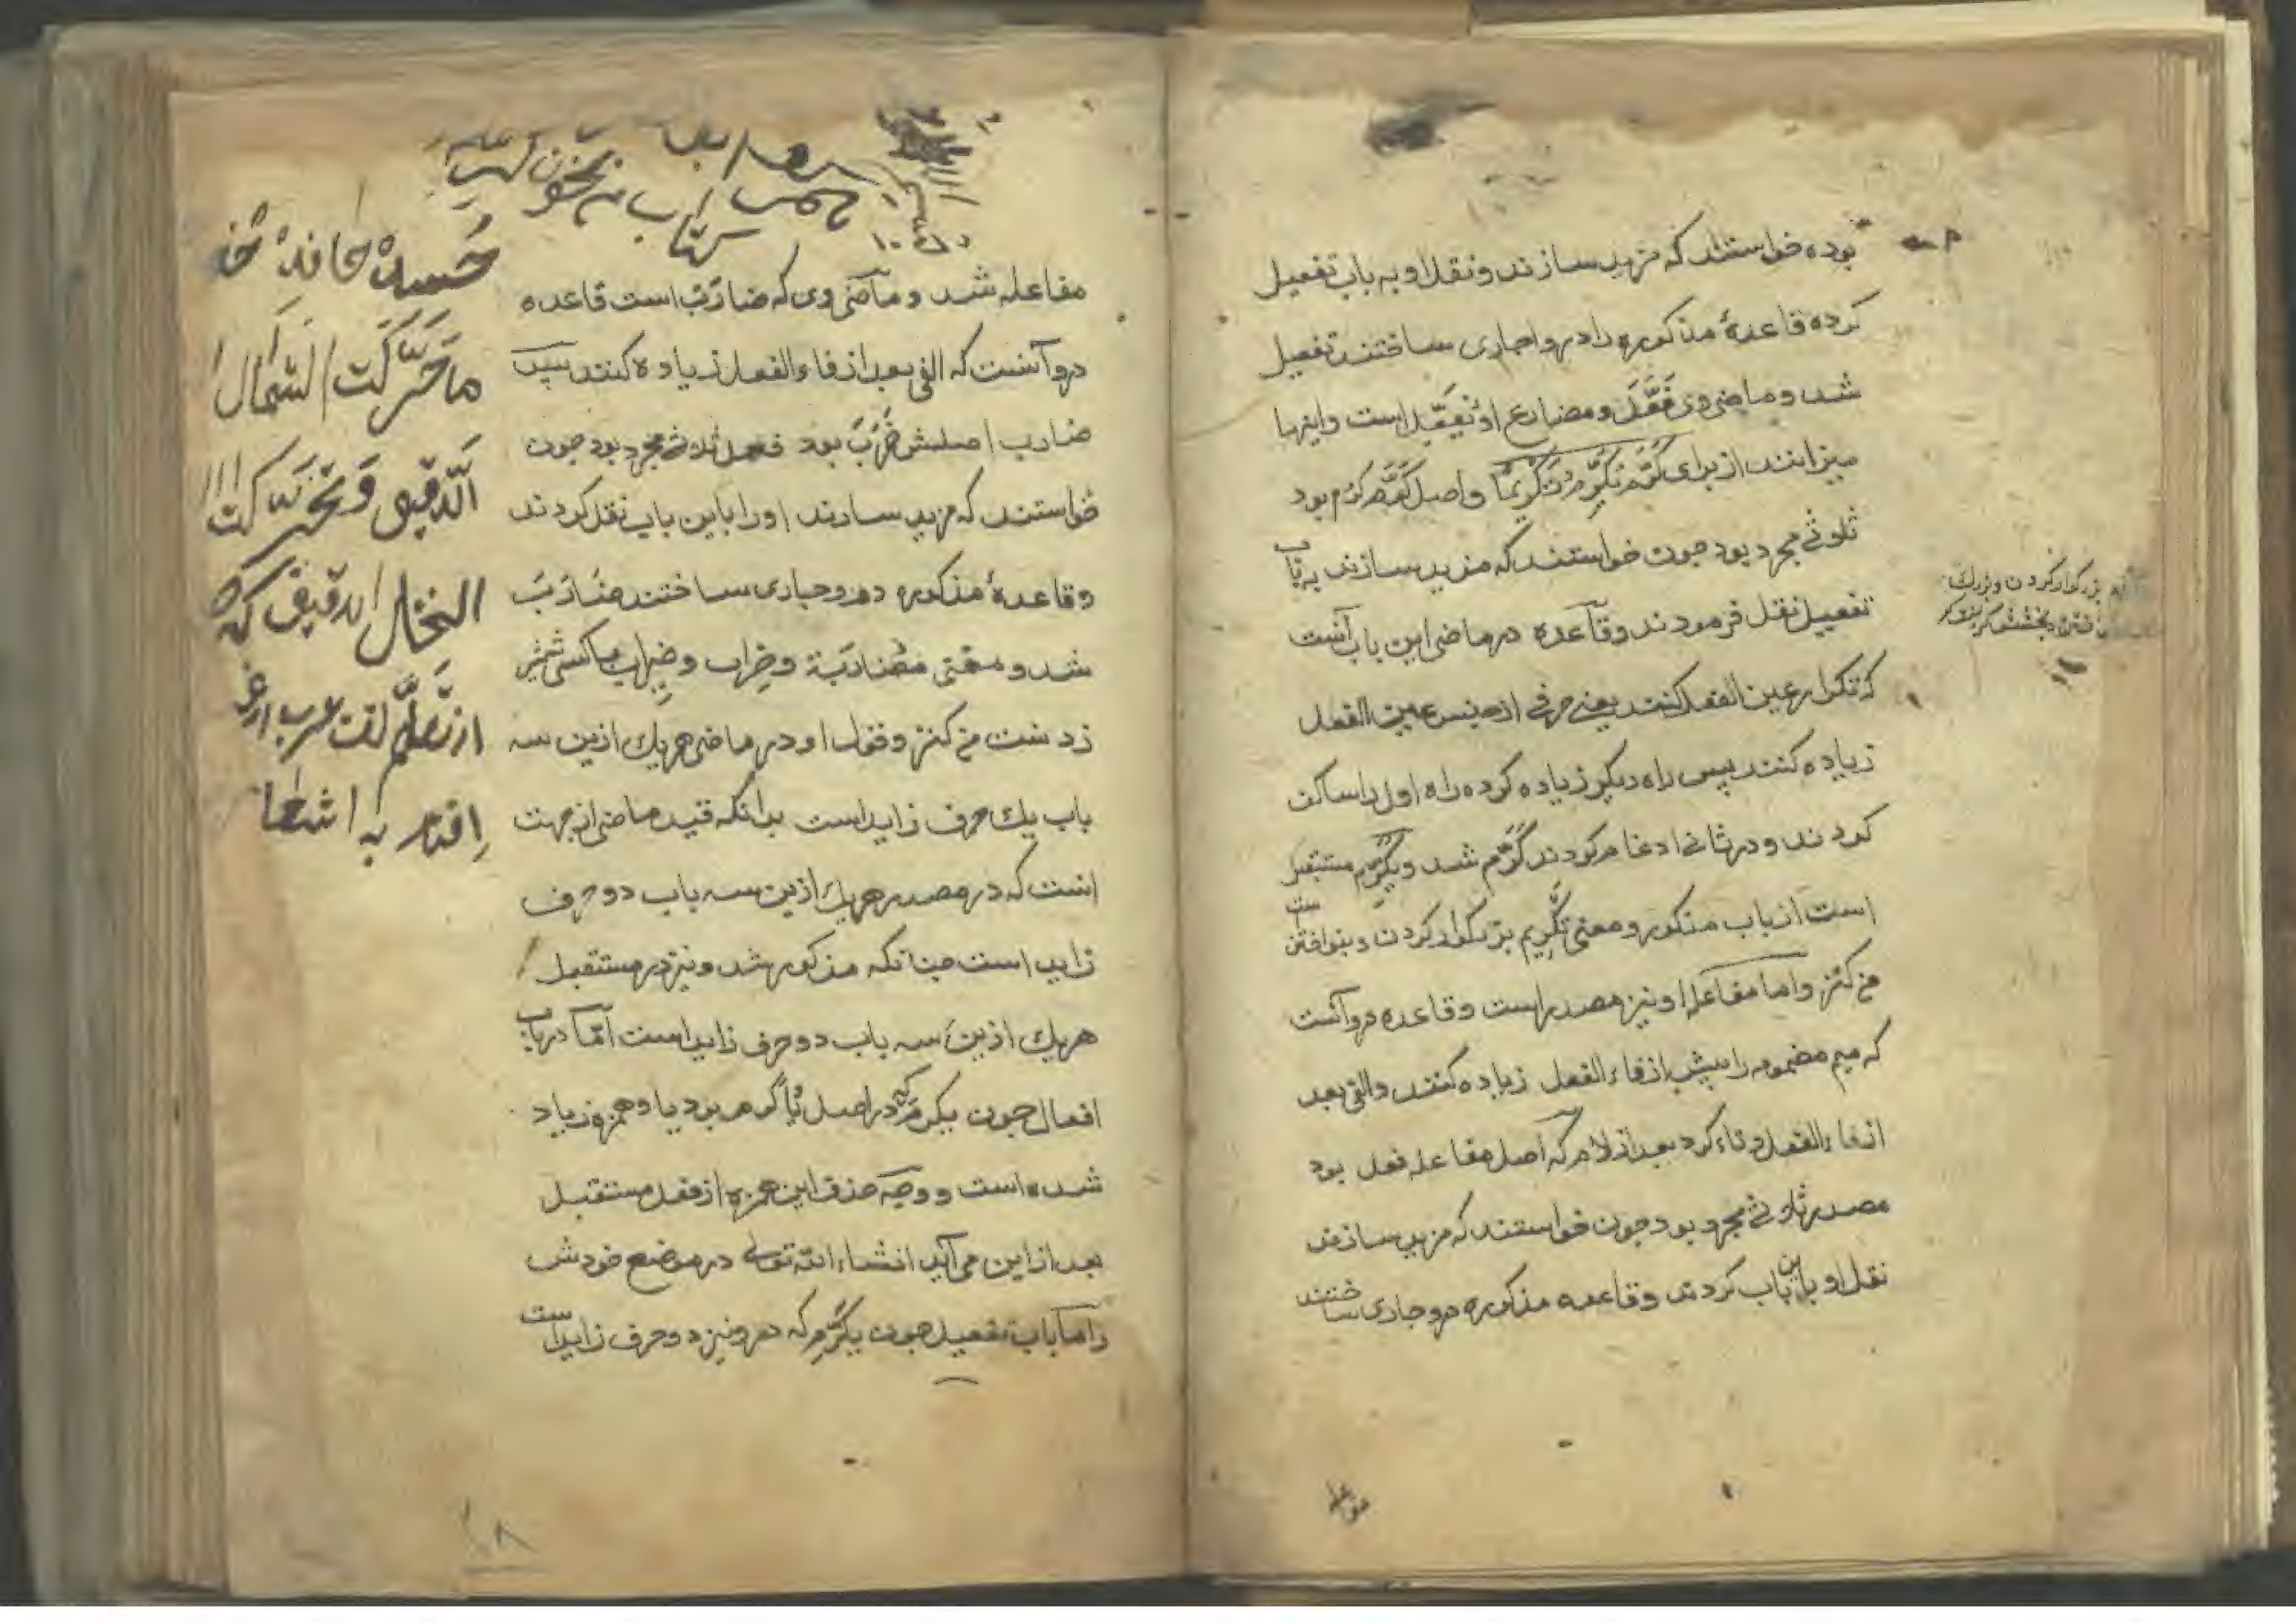 بوده خواستند که مزید سازند و نقل او به باب تفعیل
کرده قاعدهٔ مذکوره را درو جاری ساختند تفعیل
شد و ماضی وی فَعَّلَ و مضارع او یُفَعِّلُ است و اینها
میزانند از برای کَرَّمَ یُکَرِّمُ تَکْرِیمًا و اصل کَرَّمَ کرم بود
ثلوثی مجرد بود جون خواستند که مزید سازند به باب
تفعیل نقل فرمودند و قاعده در ماضی این باب آنست
که تکرار عین الفعل کنند یعنی حرفی از جنس عین الفعل
زیاده کنند پس راه دیکر زیاده کرده راه اول را ساکن
کردند و در ثانی ادغام کردند کَرَّمَ شد و یُکَرِّمُ مستقبل
است از باب مذکور و معنی تکریم بزرکوار کردن و بنواختن
مخ کنز و اما مفاعله او نیز مصدر است و قاعده درو آنست
که میم مضمومه را پیش از فاء الفعل زیاده کنند و الفی بعد
از فاء الفعل و تاء کرد بعد از لام که اصل مفاعله فعل بود
مصدر ثلوثی مجرد بود جون خواستند که مزید سازند
نقل او باین باب کردند و قاعده مذکوره درو جاری ساختند
بزرکوار کردن و بزرك
مفاعله
مفاعله شد و ماضی وی که ضارَبَ است قاعده
درو آنست که الفی بعد از فاء الفعل زیاده کنند پس
ضارب اصلش ضَرَبَ بود فعل ثلاثی مجرد بود جون
خواستند که مزید سازند او را باین باب نقل کردند
و قاعدهٔ مذکوره درو جاری ساختند ضَارَبَ
شد و معنی مضاربَة و ضِراب و ضیراب با کسی شمشیر
زدنست مخ کنز و قوله او در ماضی هریك ازین سه
باب یك حرف زاید است بدانکه قید ماضی از جهت
انست که در مصدر هریك ازین سه باب دو حرف
زاید است جنانکه مذکور شد و نیز در مستقبل
هریك ازین سه باب دو حرف زاید است اَمَّا در باب
افعال جون یکرم که در اصل یُاَکرم بود یا و همزه زیاد
شده است و وجه حذف این همزه از فعل مستقبل
بعد از این می آید انشاء الله تعالی در موضع خودش
و اما باب تفعیل جون یُکَرِّمُ که درو نیز دو حرف زاید است
کتاب
ما حَرَّکَت الشمال
الَّدقیق و تَحَرَّکت
النخال الدقیق که
از تعلّم لغت عرب
اقدام به
۱۸